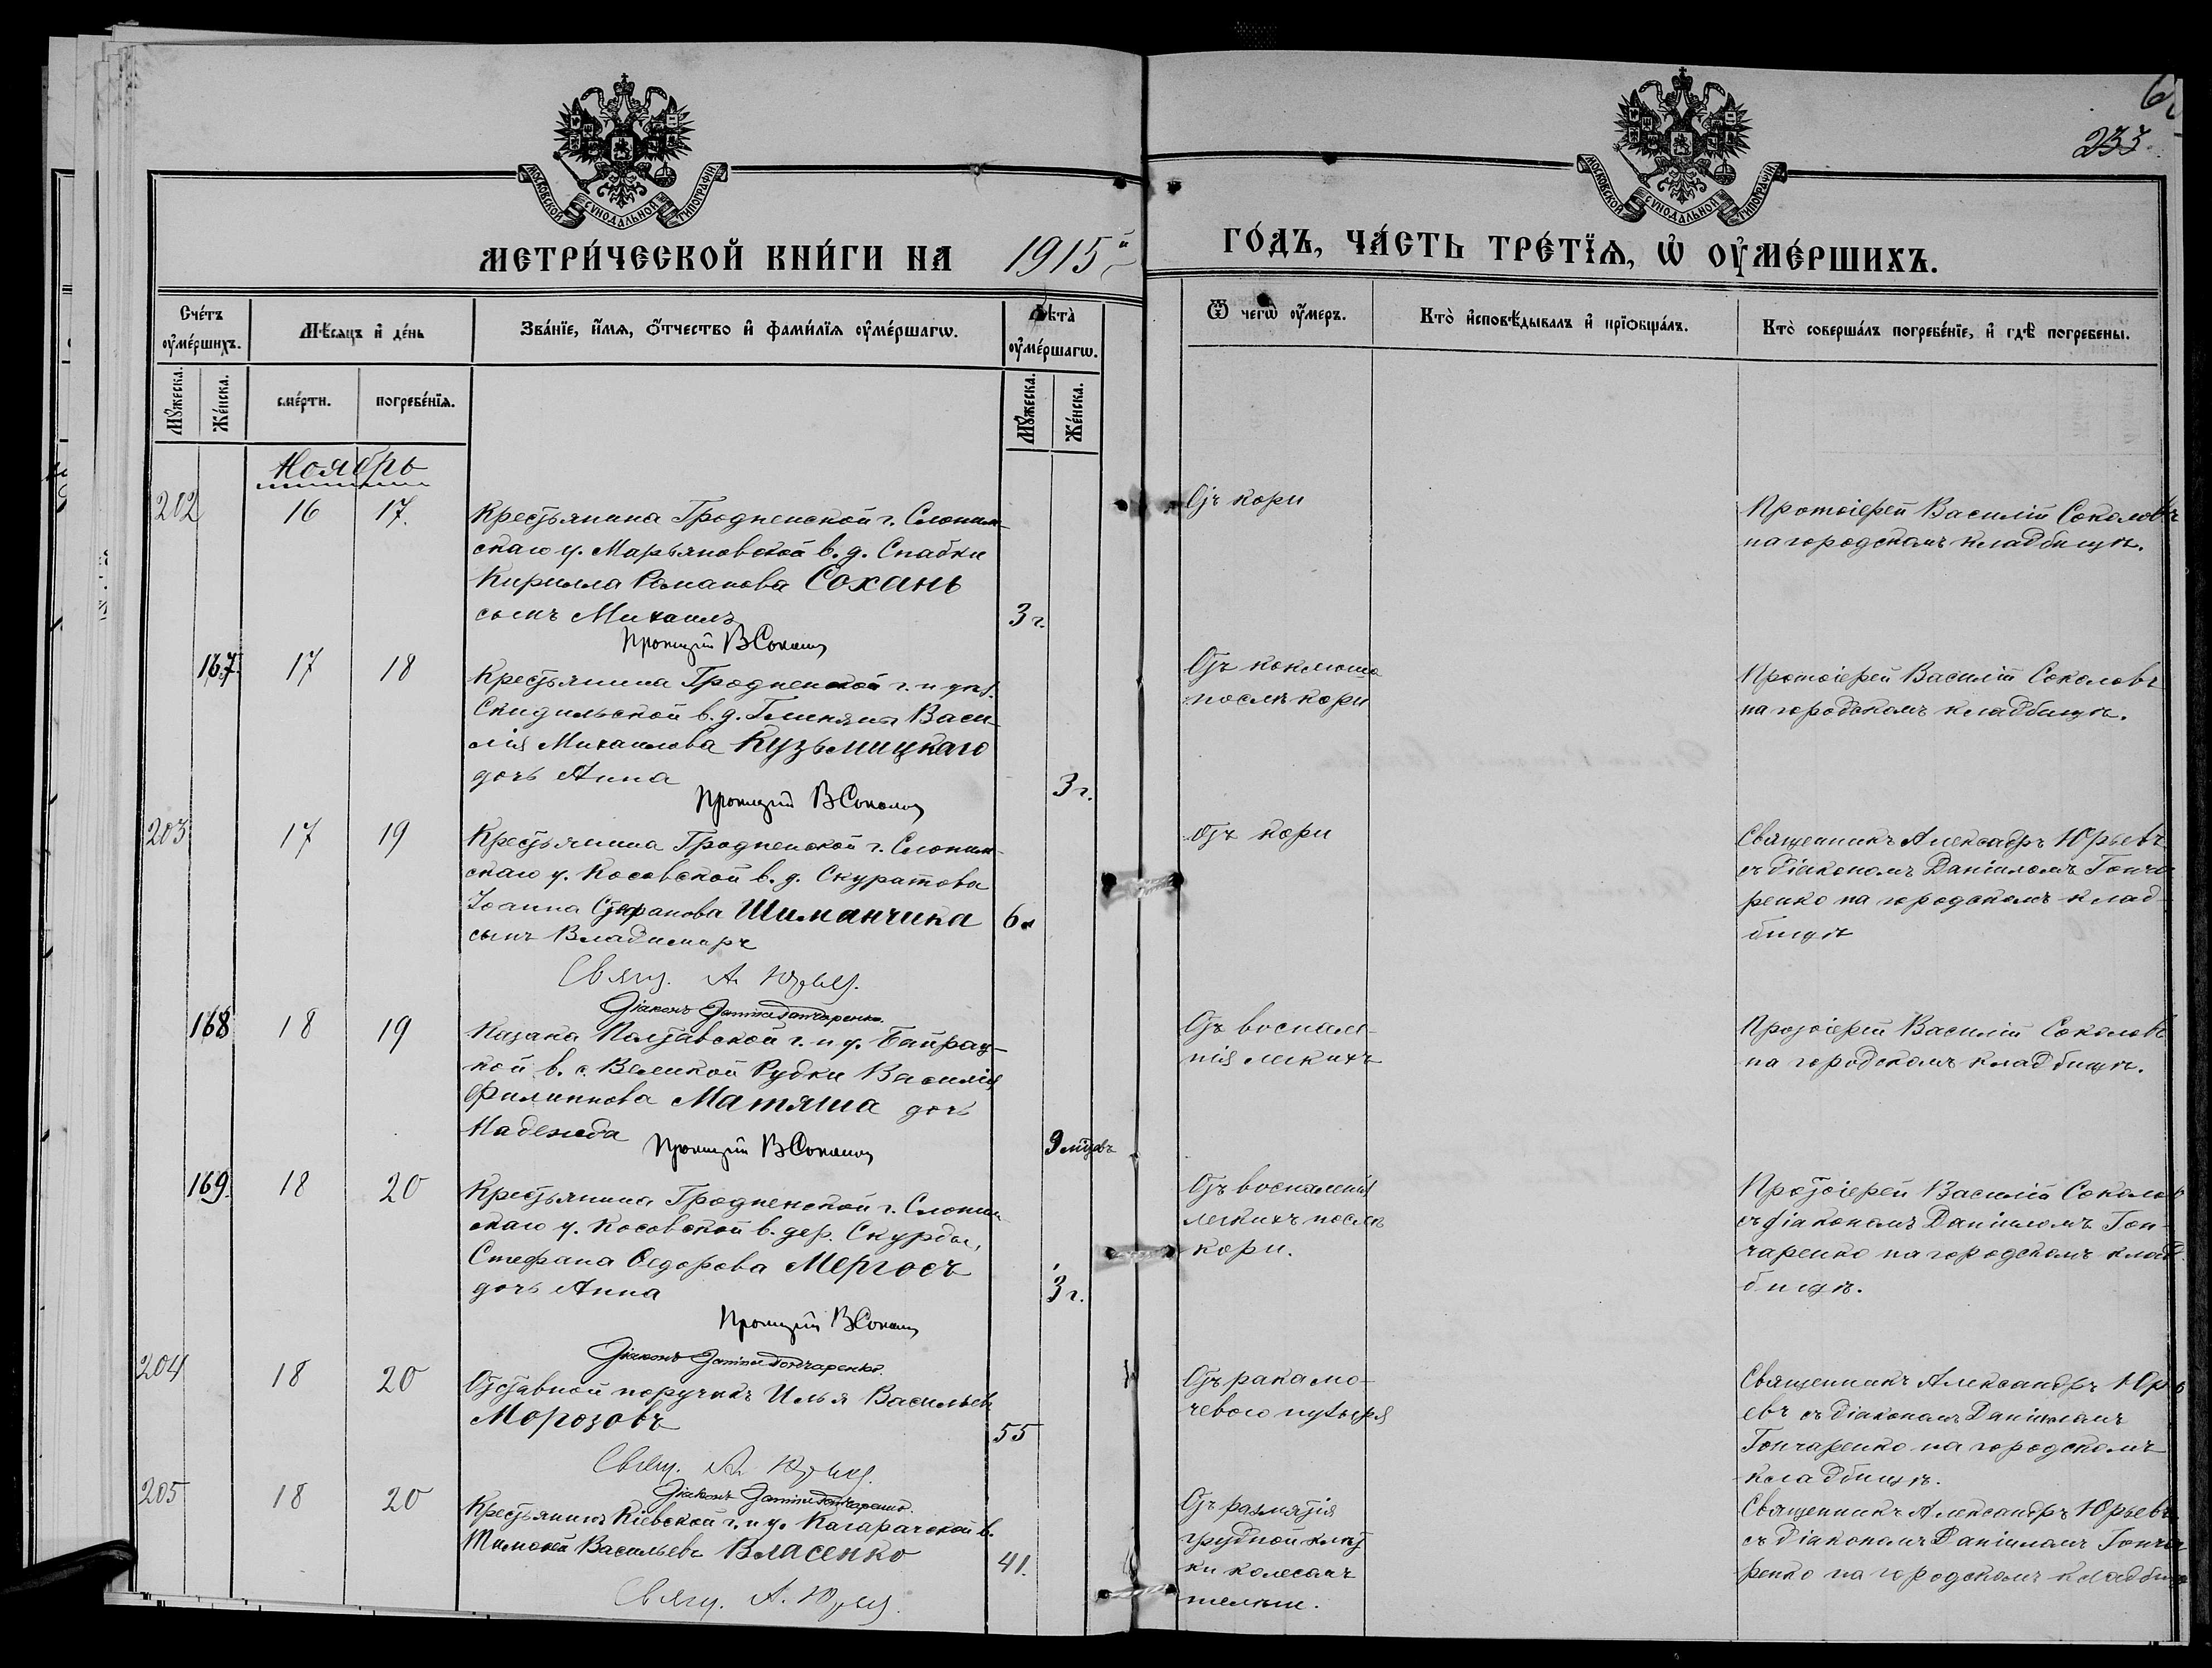 6
233.
МОСКОВСКОЙ СѴНОДАЛЬНОЙ ТИПОГРАФІИ.
МОСКОВСКОЙ СѴНОДАЛЬНОЙ ТИПОГРАФІИ.
МЕТРИ́ЧЕСКОЙ КНИ́ГИ НА 1915й ГО́ДЪ, ЧА́СТЬ ТРЕ́ТЇѦ, Ѡ҆ ОУ҆МЕ́РШИХЪ.
Сче́тъ оу҆ме́ршихъ.
Мѣ́сѧцъ и҆ де́нь
Зва́нїе, и҆́мѧ, ѻ҆́тчество и҆ фами́лїѧ оу҆ме́ршагѡ.
Лѣта̀ оу҆ме́ршагѡ.
Ѿ чегѡ̀ оу҆́меръ.
Кто̀ и҆сповѣ́дывалъ и҆ прїѡбща́лъ.
Кто̀ соверша́лъ погребе́нїе, и҆ гдѣ̀ погребены.
Мꙋ́жеска.
Же́нска.
сме́рти.
погребе́нїѧ.
Мꙋ́жеска.
Же́нска.
Ноябрь
202 16 17.
Крестьянина Гродненской г. Слоним-
скаго у. Марьяновской в. д. Спабки
Кирилла Романова Сохань
сынъ Михаилъ 3 г.
Протоіерей В Соколовъ
Отъ кори
Протоіерей Василій Соколовъ
на городскомъ кладбищѣ.
167. 17 18
Крестьянина Гродненской г. и уѣз.
Скидильской в. д. Глиняна Васи-
лія Михаилова Кузьмицкаго
дочь Анна 3 г.
Протоіерей В Соколовъ
Отъ коклюша
послѣ кори
Протоіерей Василій Соколовъ
на городскомъ кладбищѣ.
203 17 19
Крестьянина Гродненской г. Слоним-
скаго у. Косовской в. д. Скуратова
Іоанна Стефанова Шиманчика 6
сынъ Владимиръ
Свящ. А. Юрьев.
Діаконъ Даніилъ Гончаренко.
Отъ кори
Священникъ Александръ Юрьевъ
съ діакономъ Даніиломъ Гонча-
ренко на городскомъ клад-
бищѣ
168 18 19
Казака Полтавской г. и у. Байрац-
кой в. с. Великой Рудки Василія
Филиппова Матяша дочь
Надежда 9 мѣсяцевъ
Протоіерей В Соколовъ
Отъ воспале-
нія легкихъ
Протоіерей Василій Соколовъ
на городскомъ кладбищѣ.
169. 18 20
Крестьянина Гродненской г. Слоним-
скаго у. Косовской в. дер. Скурды,
Стефана Ѳедорова Мергосъ
дочь Анна 3 г.
Протоіерей В Соколовъ
Діаконъ Даніилъ Гончаренко.
Отъ воспаленія
легкихъ послѣ
кори.
Протоіерей Василій Соколовъ
съ діакономъ Даніиломъ Гон-
чаренко на городскомъ клад-
бищѣ.
204 18 20
Отставной поручикъ Илья Васильевъ
Морозовъ 55
Свящ. А. Юрьев.
Діаконъ Даніилъ Гончаренко.
Отъ рака мо-
чевого пузыря
Священникъ Александръ Юрь-
евъ съ діакономъ Даніиломъ
Гончаренко на городскомъ
кладбищѣ.
205 18 20
Крестьянинъ Кіевской г. и у. Кагарлской в.
Тимоѳей Васильевъ Власенко 41.
Свящ. А. Юрьев.
Отъ размятія
грудной клѣт
ки колесомъ
Священникъ Александръ Юрьевъ
съ діакономъ Даніиломъ Гонча-
ренко на городскомъ кладбищѣ